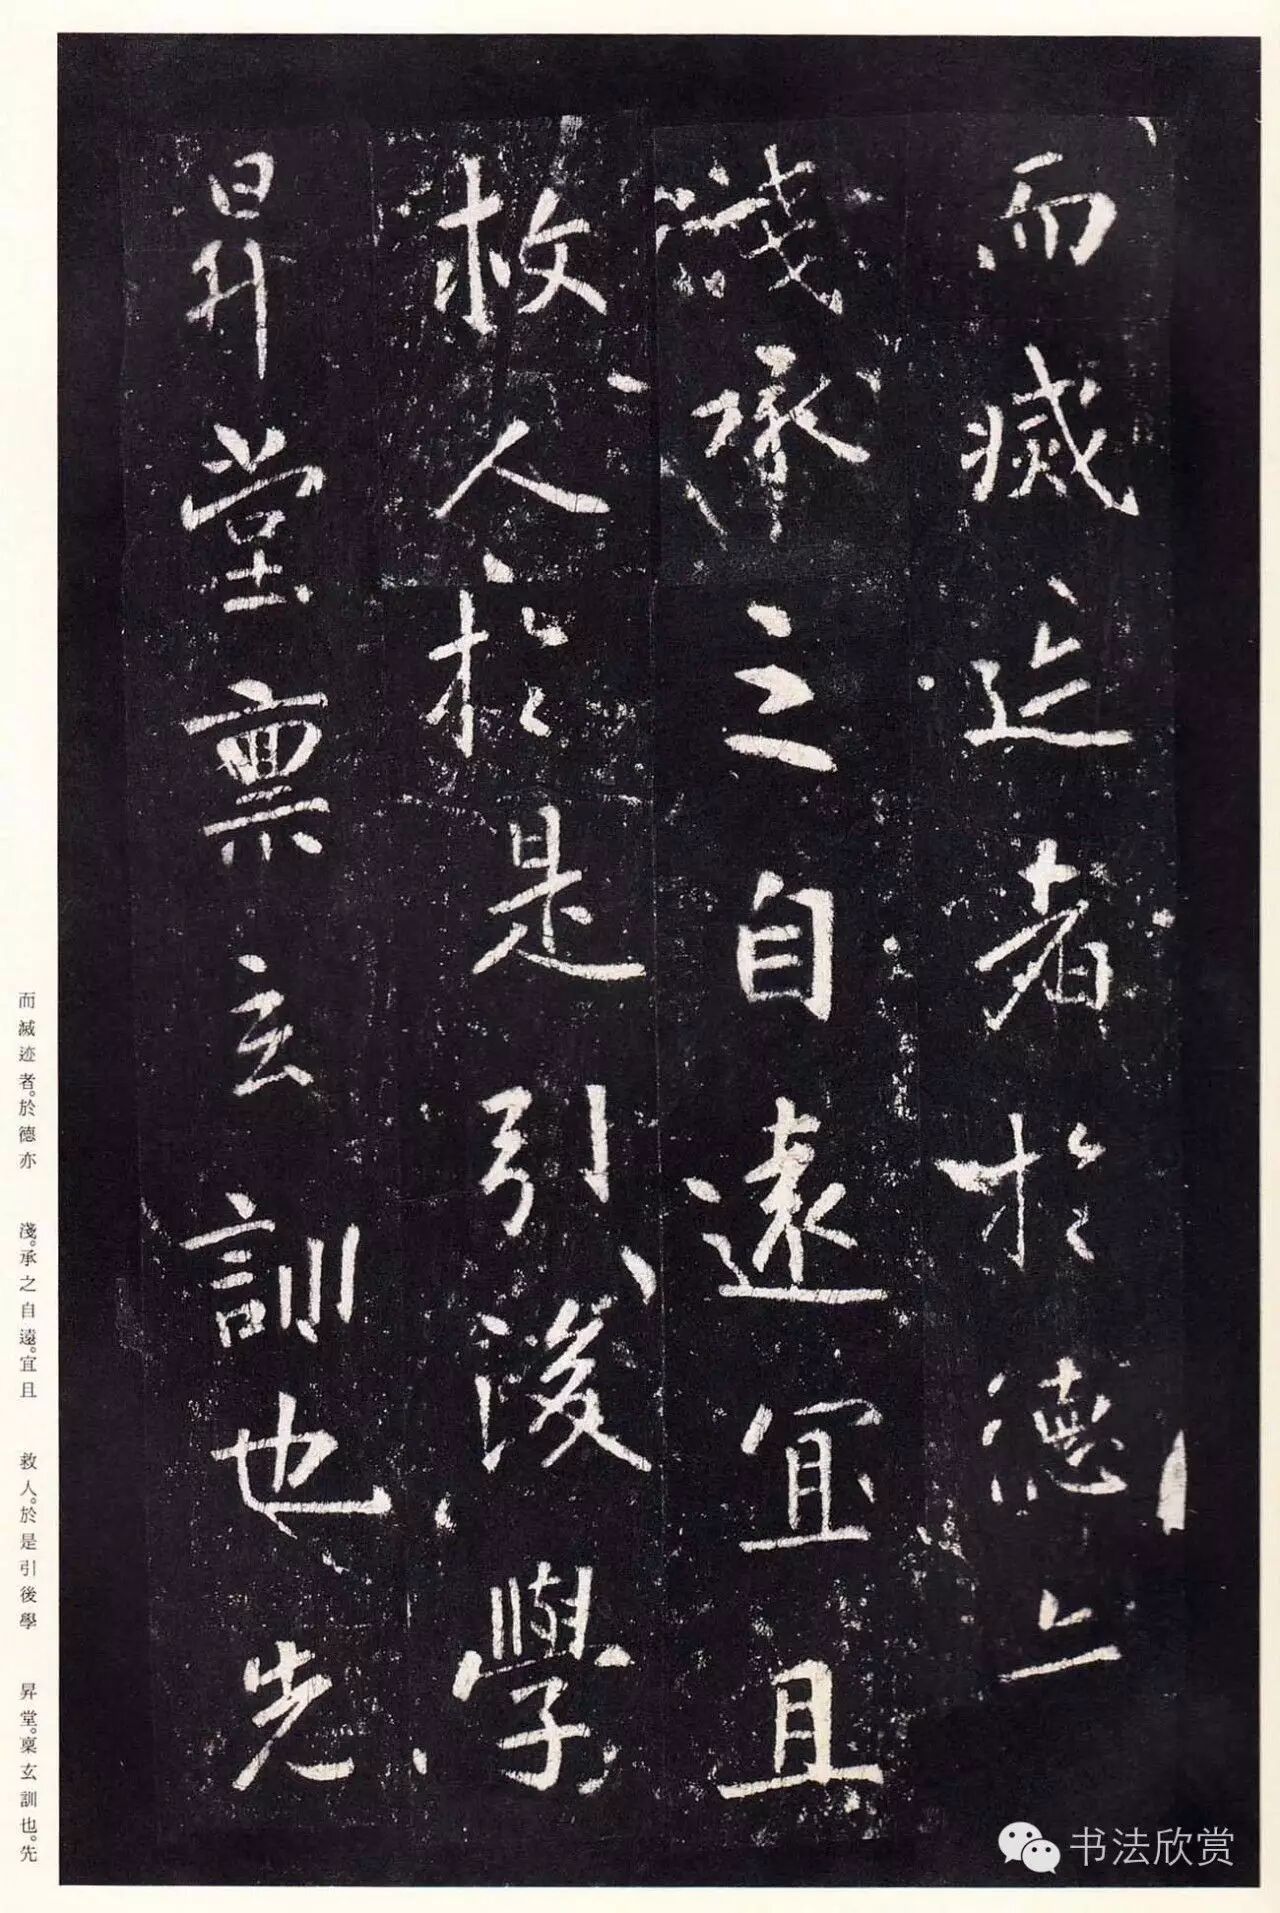 而滅迹者於德亦
淺承之自遠宜且
救人於是引後學
昇堂稟玄訓也先
而滅迹者。於德亦 淺。承之自遠。宜且 救人。於是引後學 昇堂。稟玄訓也。先
书法欣赏